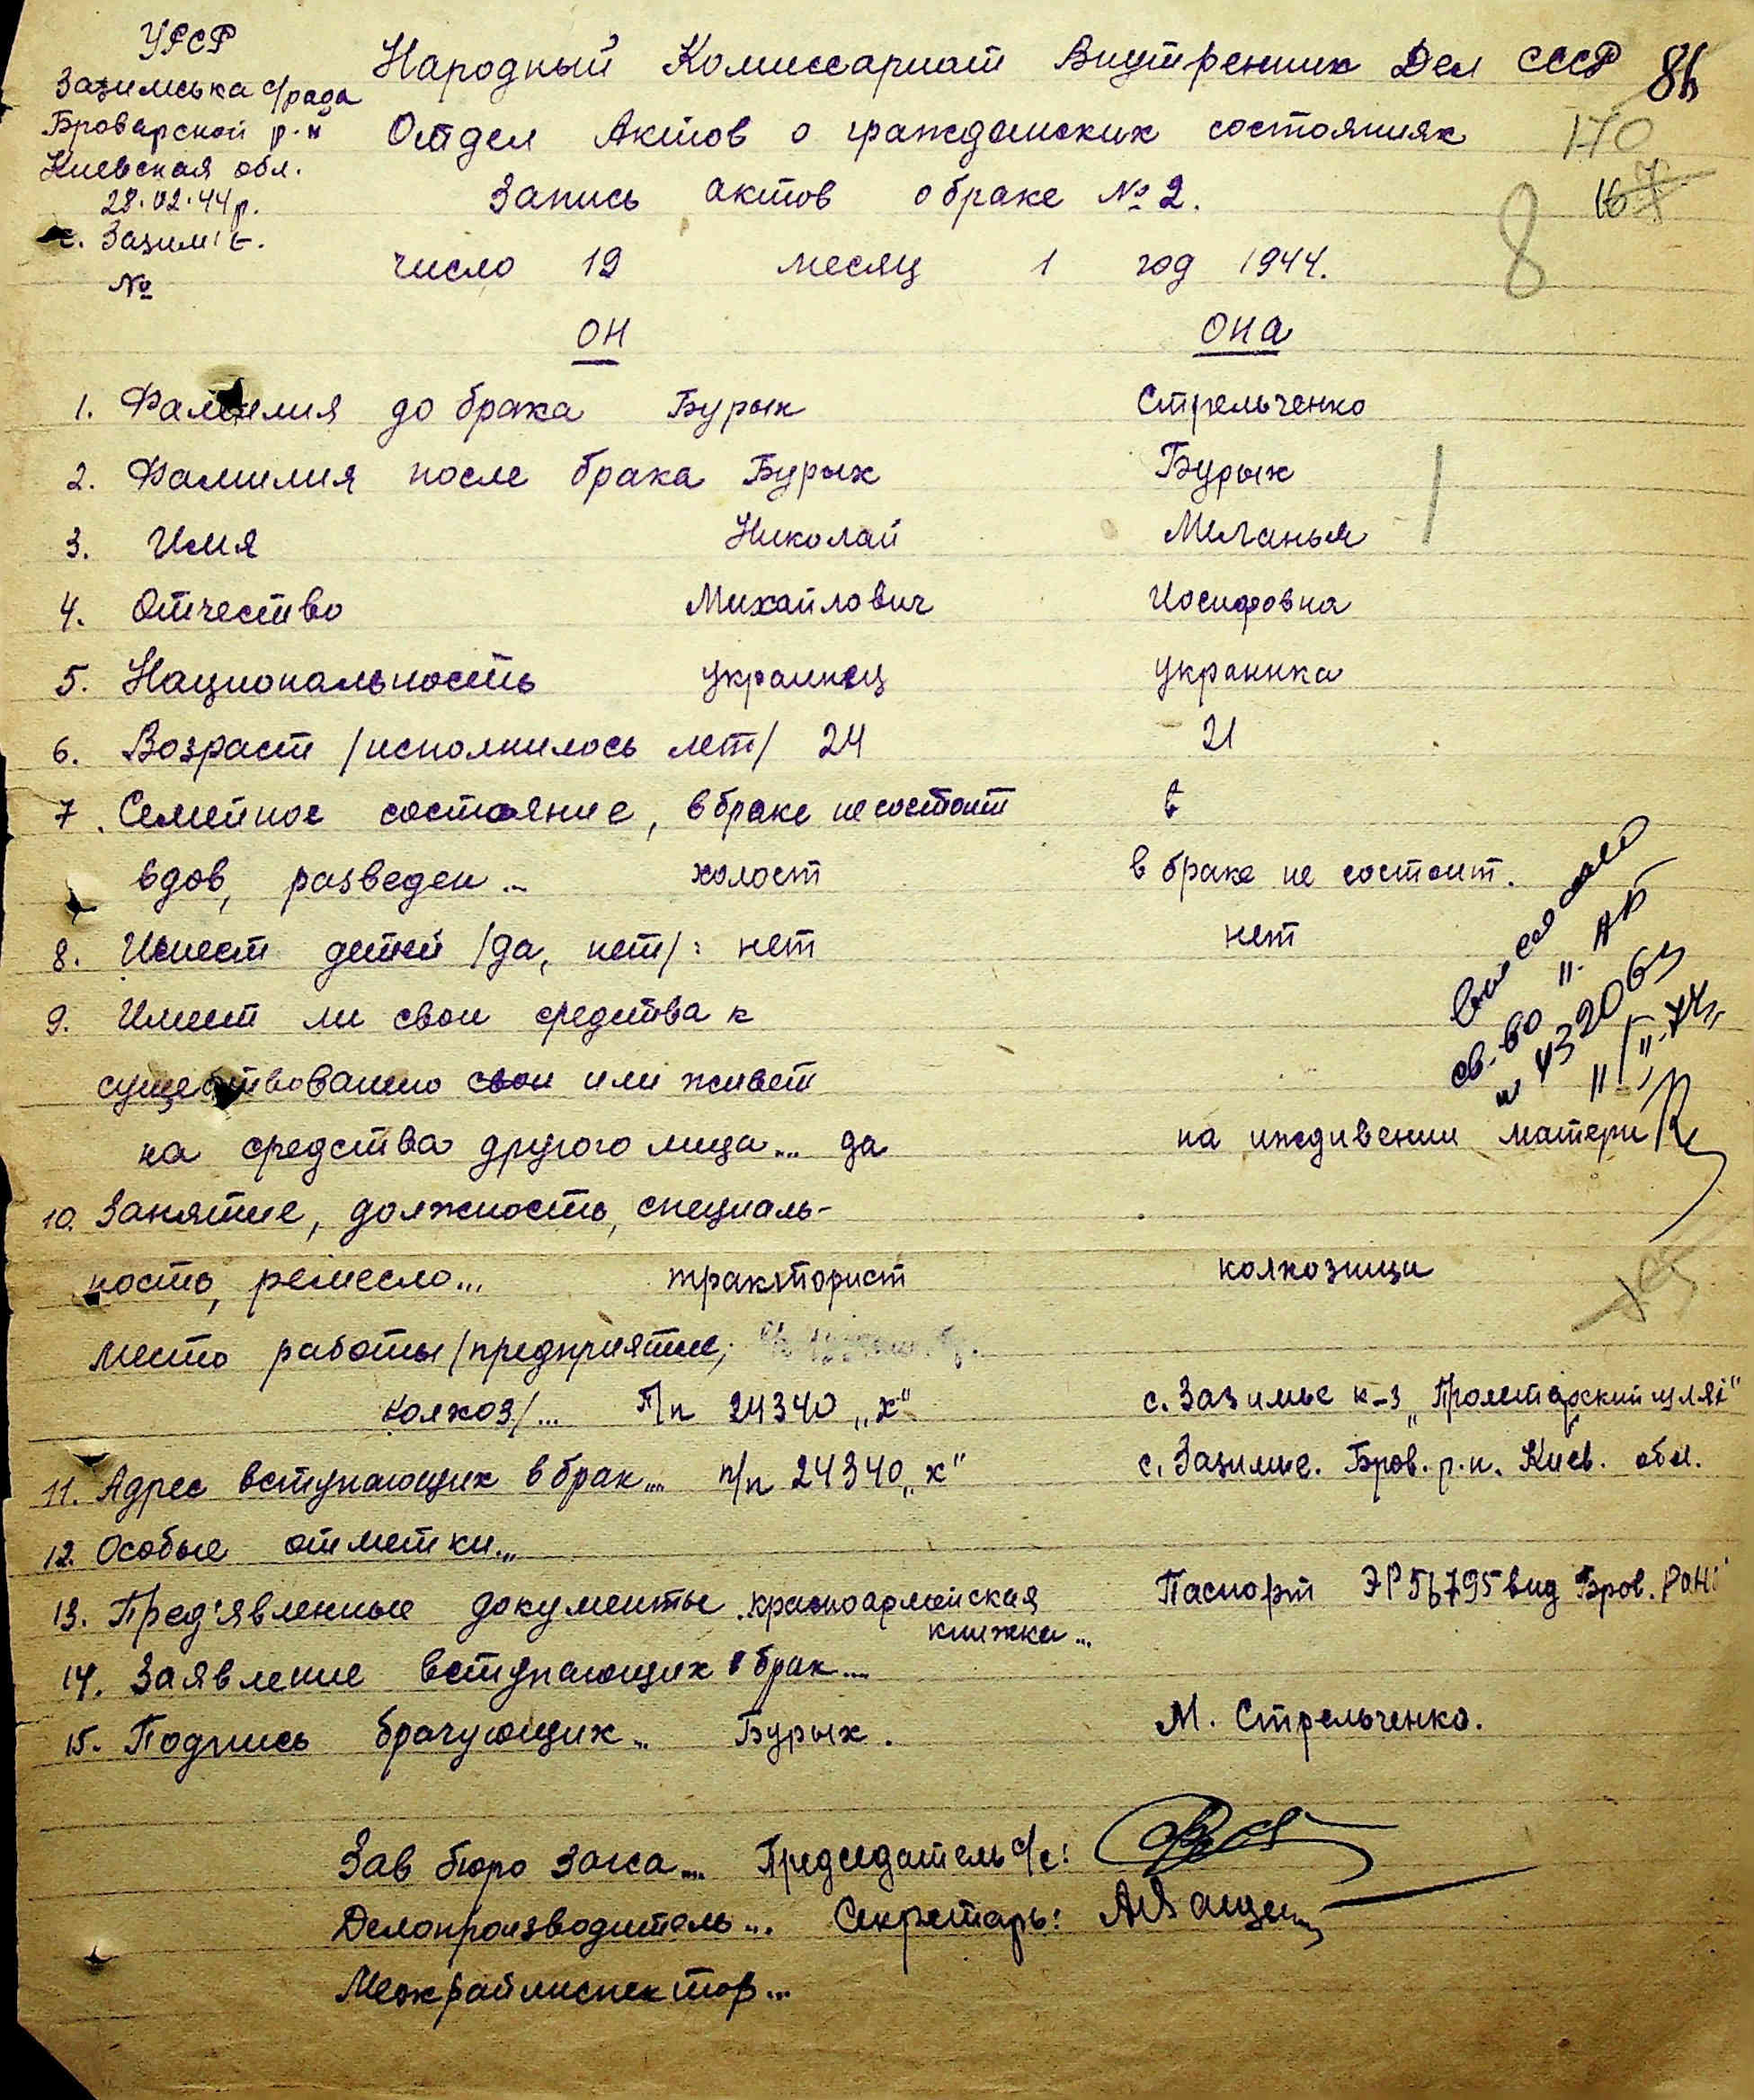 УРСР
Зазимська с/рада
Броварской р-н
Киевская обл.
28.02.44 р.
с. Зазимʼє.
№
Народный Комиссариат Внутренних Дел СССР
Отдел Актов о гражданских состояниях
170
Запись актов о браке № 2.
167
8
число 19 месяц 1 год 1944.
ОН ОНА
1. Фамилия до брака Бурых Стрельченко
2. Фамилия после брака Бурых Бурых
3. Имя Николай Меланья
4. Отчество Михайлович Иосифовна
5. Национальность украинец украинка
6. Возраст /исполнилось лет/ 24 21
7. Семейное состояние, в браке не состоит в
вдов, разведен... холост в браке не состоит.
8. Имеет детей /да, нет/: нет нет
9. Имеет ли свои средства к
существованию свои или живет
на средства другого лица... да на иждивении матери
св-во
10. Занятие, должность, специаль-
ность, ремесло... тракторист колхозница
место работы /предприятие,
колхоз/... П/п 24340 „х" с. Зазимье к-з „Пролетарский шлях"
11. Адрес вступающих в брак... п/п 24340 „х" с. Зазимье. Бров. р.н. Киев. обл.
12. Особые отметки...
13. Пред'явленные документы красноармейская книжка... Паспорт ЭР 56795 выд Бров.
14. Заявление вступающих в брак...
15. Подпись брачующих... Бурых. М. Стрельченко.
Зав бюро Загса... Председатель с/с:
Делопроизводитель... Секретарь:
Межрайинспектор...